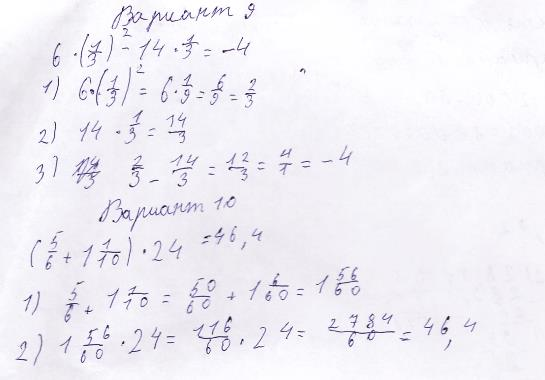 Вариант 9
6 · (1/3)² - 14 · 1/3 = -4
1) 6 · (1/3)² = 6 · 1/9 = 6/9 = 2/3
2) 14 · 1/3 = 14/3
3) 2/3 - 14/3 = 12/3 = 4/1 = -4
Вариант 10
(5/6 + 1 1/10) · 24 = 46,4
1) 5/6 + 1 1/10 = 50/60 + 1 6/60 = 1 56/60
2) 1 56/60 · 24 = 116/60 · 24 = 2784/60 = 46,4